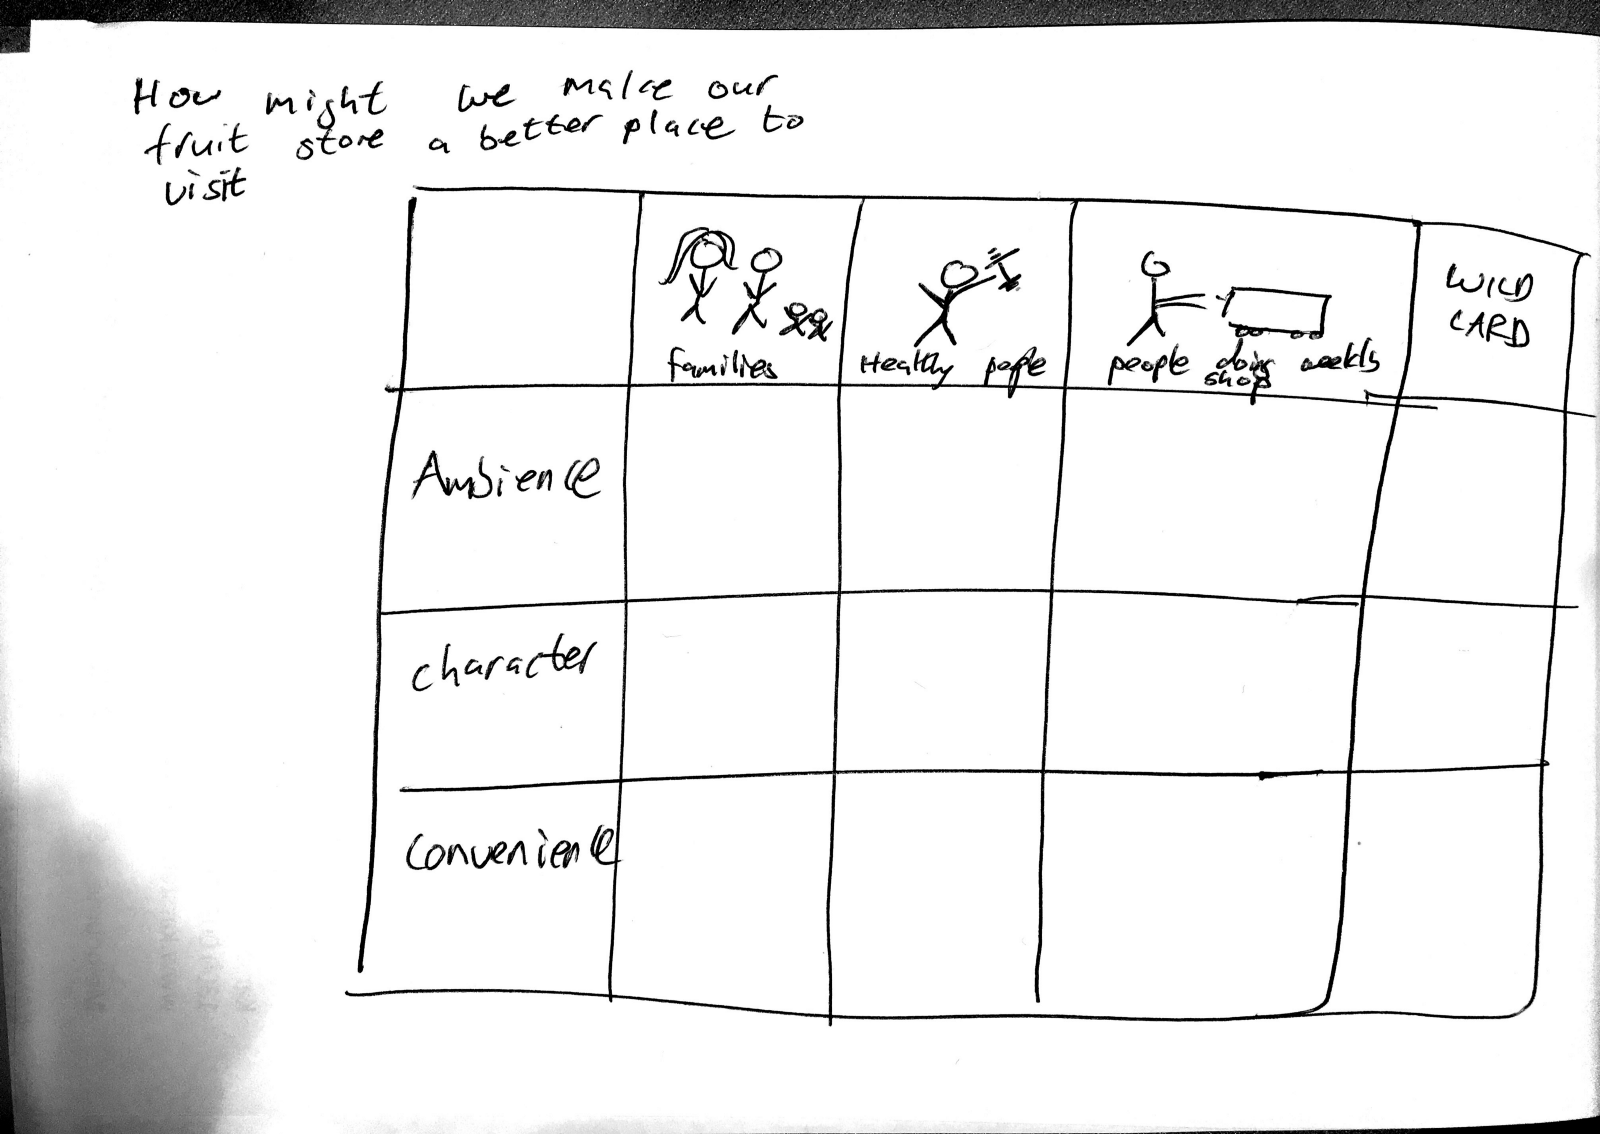 How might we make our
fruit store a better place to
visit
families
Healthy people
people doing weekly
shop
WILD
CARD
Ambience
character
convenience